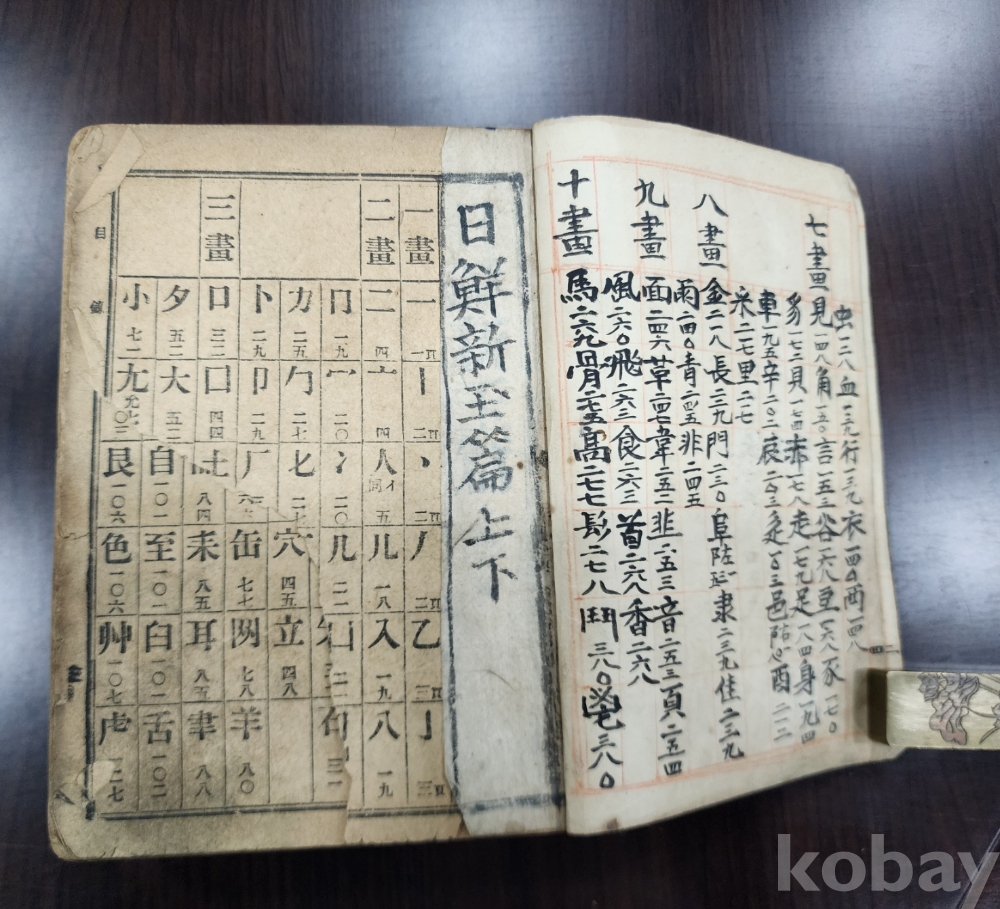 七畫
虫三八血一三九行一三九衣一四〇襾一四八
見一四八角一五〇言一五三谷一六八豆一六八豕一七〇
豸一七二貝一七四赤一七八走一七九足一八四身一九四
車一九五辛二〇二辰二〇三辵二〇三邑阝二
釆二一七里二一七
八畫
金二一八長二二九門二三〇阜
隶二三九隹二三九
雨二四〇青二四五非二四五
九畫
面二四六革二四七韋二五二韭二五三音二五三頁二五四
風二六〇飛二六二食二六三首二六八香二六八
十畫
馬二六九骨二七五高二七七髟二七八鬥三八〇鬯三八〇
日鮮新玉篇上下
一畫
一 一
丨 二
丶 二
丿 二
乙 三
亅 三
二畫
二 四
亠 四
人 亻同 五
儿 一八
入 一九
八 一九
冂 一九
冖 二〇
冫 二〇
几 二一
力 二五
勹 二七
匕 二七
穴 四五
立 四八
卜 二九
卩 二九
厂
缶 七七
羊 八〇
三畫
口 三二
囗 四四
耒 八五
耳 八五
聿 八八
夕 五二
大 五二
自 一〇一
至 一〇一
臼 一〇二
舌 一〇二
小 七一
尢
艮 一〇六
色 一〇六
艸 一〇七
虍 一二七
目
kobay